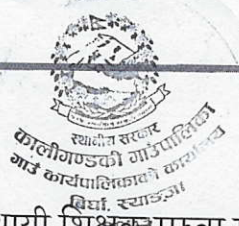 स्थानीय सरकार
कालीगण्डकी गाउँपालिका
गाउँ कार्यपालिकाको कार्यालय
बिर्घा, स्याङ्जा